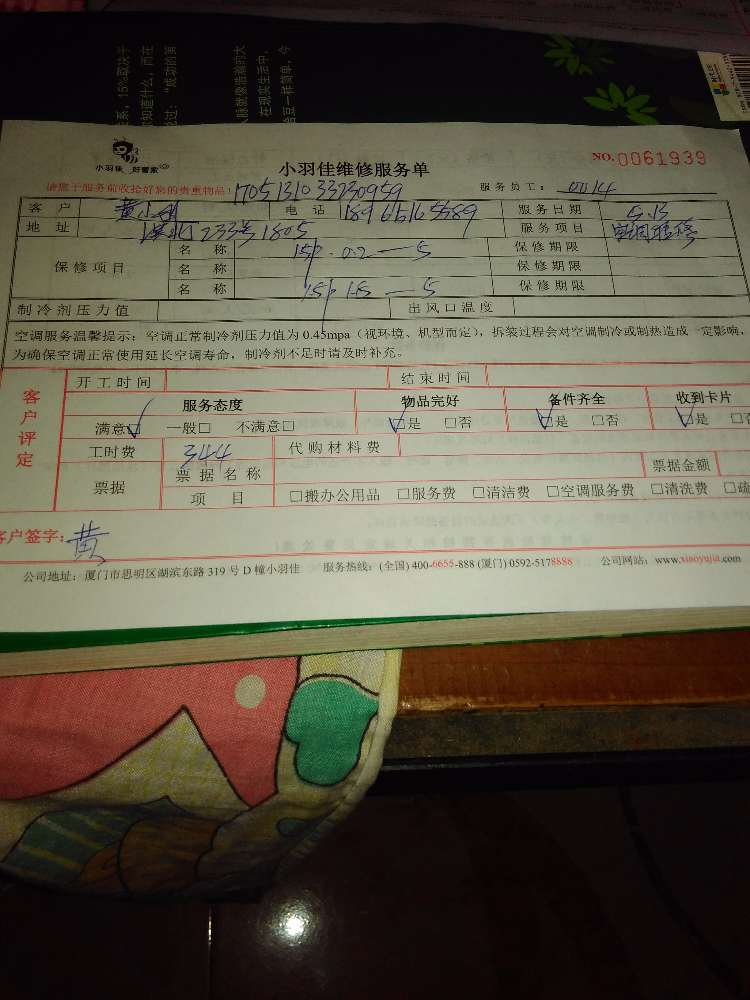 系，15%取决于
知道什么，而在
过："成功的第
人脉就像倍增的大
在现实生活中，
豆一样简单，今
小羽佳 好管家
小羽佳维修服务单
NO.0061939
请您于服务前收拾好您的贵重物品！
170513103323095 9
服务员工： 0014
客 户 黄小 电 话 18966165589 服务日期 5.13
地 址 湖北 233号1805 服务项目 空调维修
保修项目 名 称 1.5p. 0.2 — 5 保修期限
名 称 保修期限
名 称 1.5p 1.5 — 5 保修期限
制冷剂压力值 出风口温度
空调服务温馨提示：空调正常制冷剂压力值为 0.45mpa（视环境、机型而定），拆装过程会对空调制冷或制热造成一定影响，
为确保空调正常使用延长空调寿命，制冷剂不足时请及时补充。
客户评定
开工时间 结束时间
服务态度 物品完好 备件齐全 收到卡片
满意☑ 一般□ 不满意□ ☑是 □否 ☑是 □否 ☑是 □否
工时费 344 代购材料费
票据 票据名称 票据金额
项 目 □搬办公用品 □服务费 □清洁费 □空调服务费 □清洗费 □疏
客户签字：黄
公司地址：厦门市思明区湖滨东路 319 号 D 幢小羽佳 服务热线：(全国) 400-6655-888 (厦门) 0592-5178888 公司网站：www.xiaoyujia.com